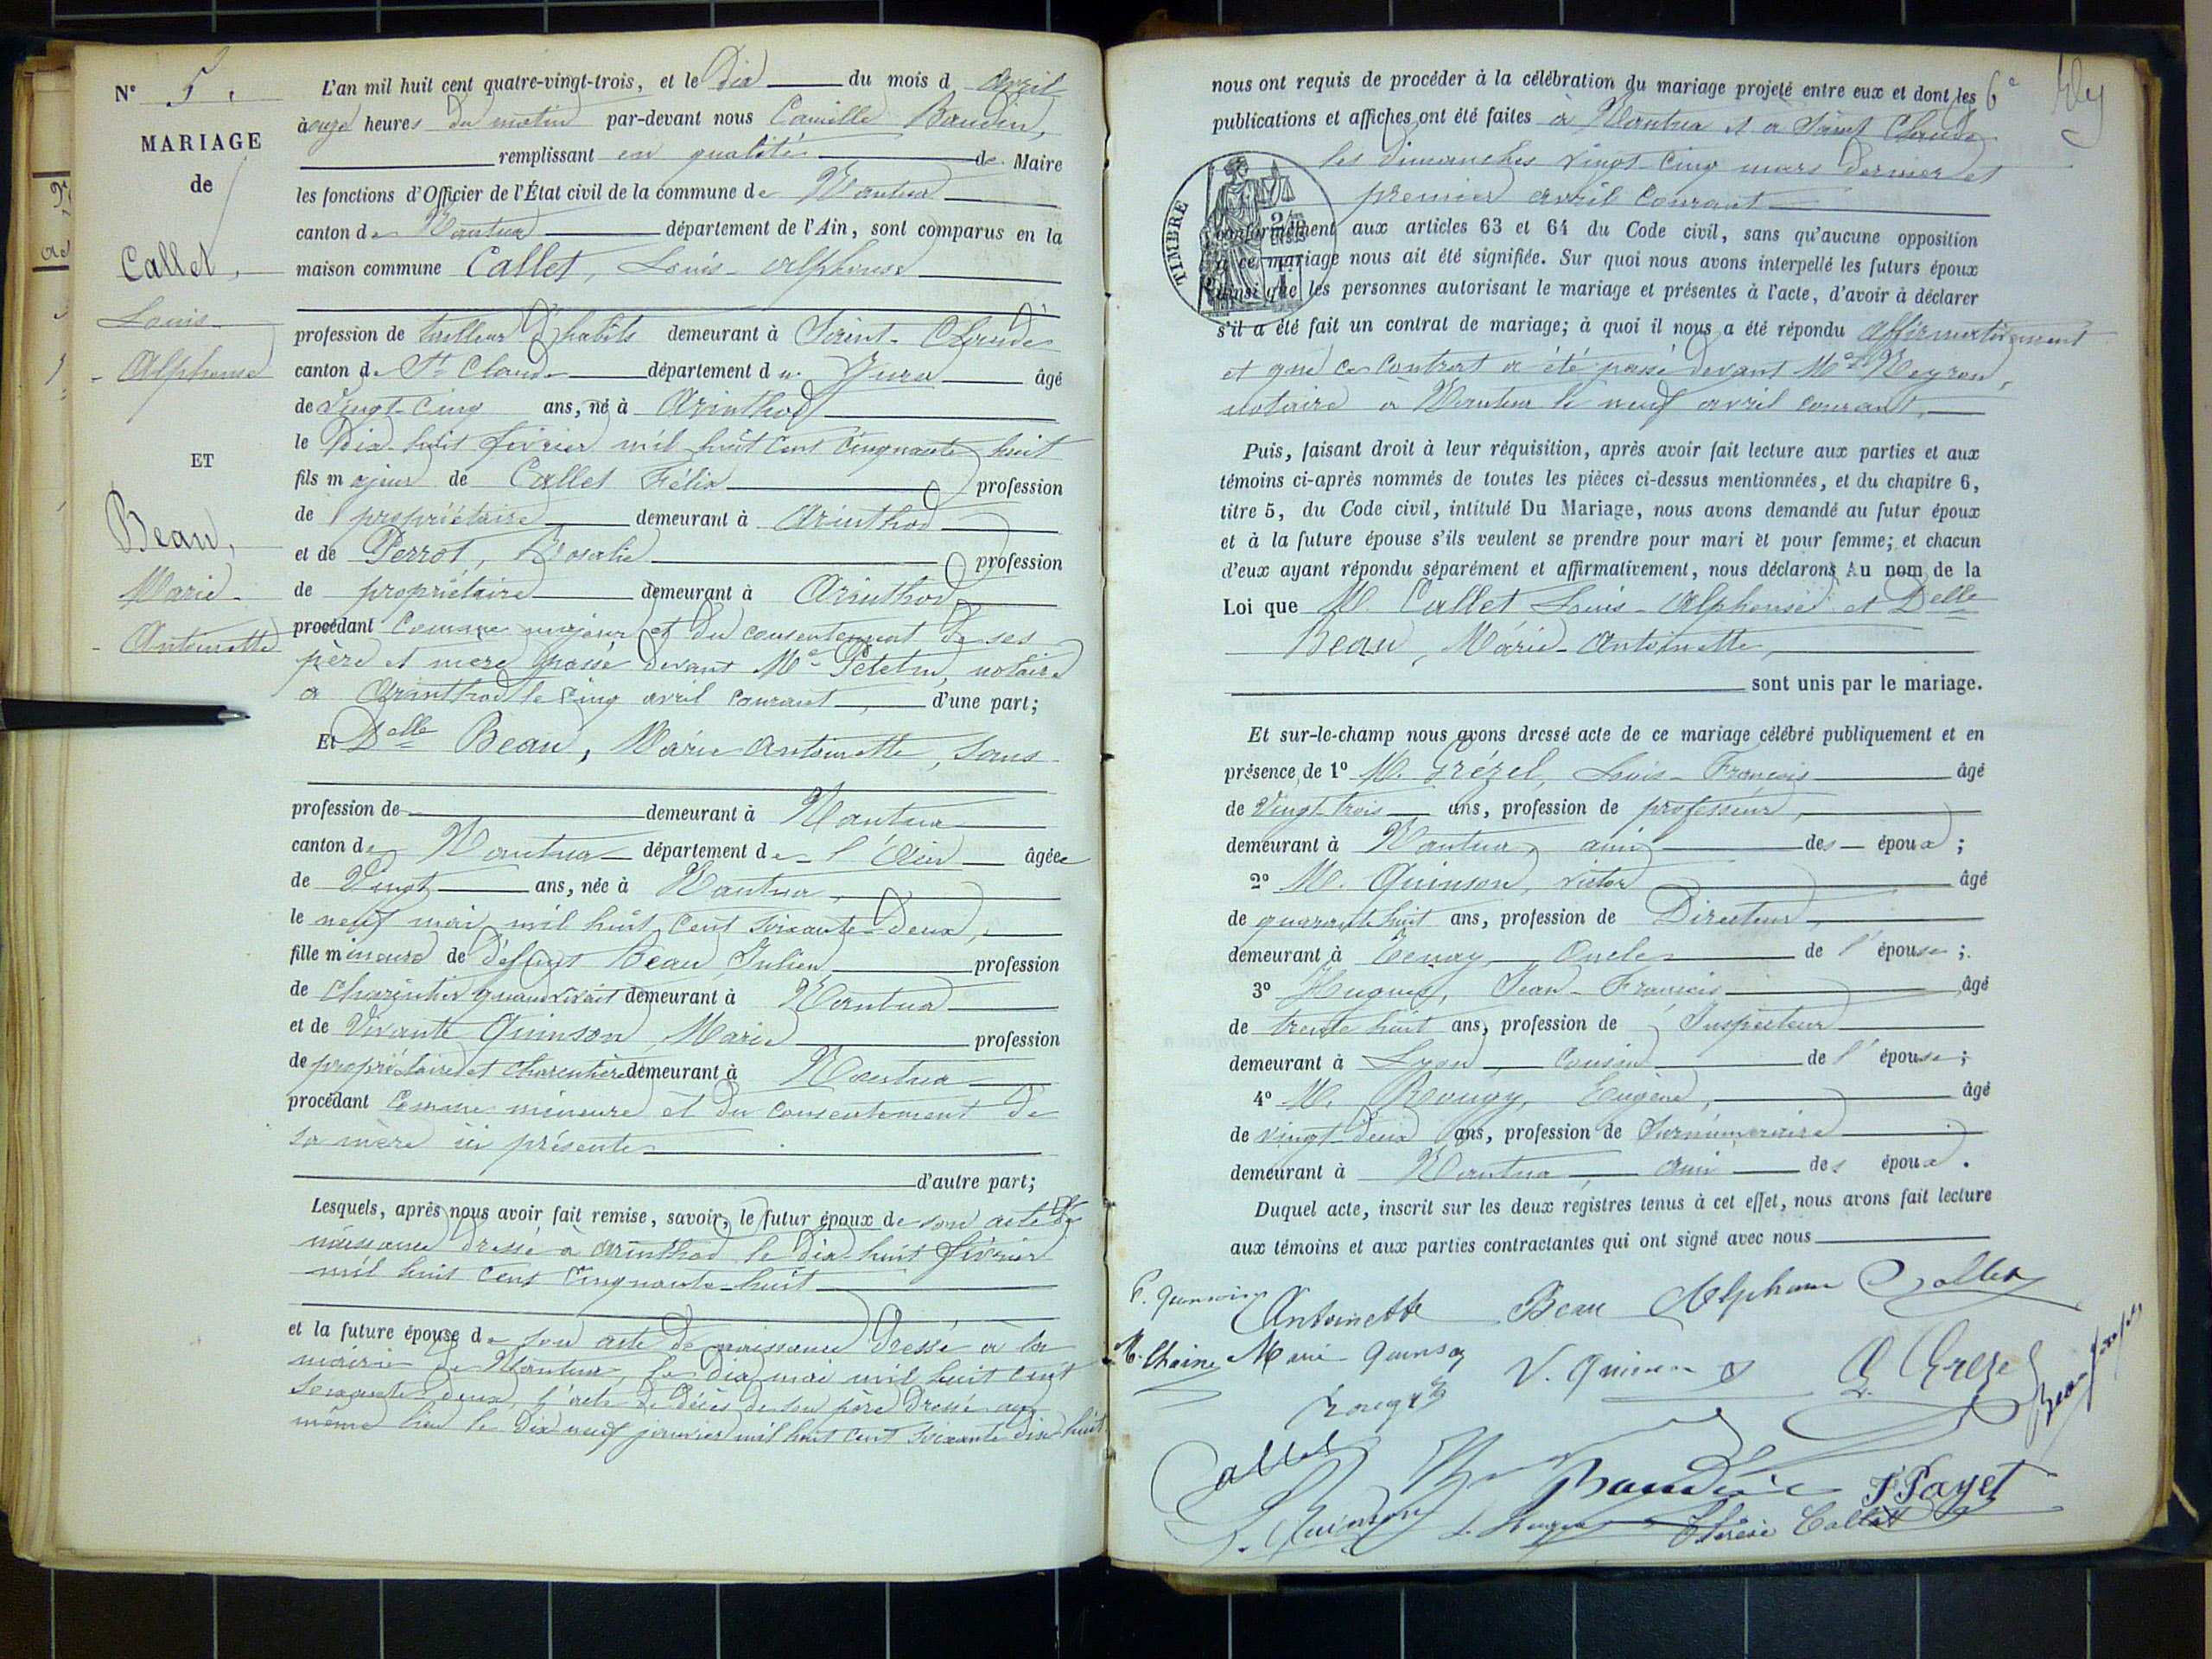 N° 5.
MARIAGE
de
Callet,
Louis-
Alphonse
ET
Beau,
Marie-
Antoinette
L'an mil huit cent quatre-vingt-trois, et le Dix du mois d avril
à onze heures du matin par-devant nous Camille Baudin,
remplissant en qualité de Maire
les fonctions d'Officier de l'État civil de la commune de Nantua
canton de Nantua département de l'Ain, sont comparus en la
maison commune Callet, Louis-Alphonse
profession de tailleur d'habits demeurant à Saint-Claude
canton de St Claude département du Jura âgé
de vingt-cinq ans, né à Arinthod
le Dix-huit février mil huit cent cinquante huit
fils majeur de Callet Félix profession
de propriétaire demeurant à Arinthod
et de Perrot, Rosalie profession
de propriétaire demeurant à Arinthod
procédant comme majeur et du consentement de ses
père et mère passé devant Me Petetin, notaire
à Arinthod le cinq avril courant, d'une part;
Et Delle Beau, Marie Antoinette, sans
profession de demeurant à Nantua
canton de Nantua département de l'Ain âgée
de Vingt ans, née à Nantua,
le neuf mai mil huit cent soixante-deux,
fille mineure de défunt Beau Julien profession
de Charcutier quand vivait demeurant à Nantua
et de Vivante Quinson, Marie profession
de propriétaire et charcutière demeurant à Nantua
procédant comme mineure et du consentement de
sa mère ici présente
d'autre part;
Lesquels, après nous avoir fait remise, savoir, le futur époux de son acte de
naissance dressé à Arinthod le dix huit février
mil huit cent cinquante-huit
et la future épouse de son acte de naissance dressé à la
mairie de Nantua, le dix mai mil huit cent
soixante deux, l'acte de décès de son père dressé au
même lieu le dix neuf janvier mil huit cent soixante dix huit
6e
nous ont requis de procéder à la célébration du mariage projeté entre eux et dont les
publications et affiches ont été faites à Nantua et à Saint Claude
les dimanches vingt-cinq mars dernier et
premier avril courant
TIMBRE
conformément aux articles 63 et 64 du Code civil, sans qu'aucune opposition
à ce mariage nous ait été signifiée. Sur quoi nous avons interpellé les futurs époux
ainsi que les personnes autorisant le mariage et présentes à l'acte, d'avoir à déclarer
s'il a été fait un contrat de mariage; à quoi il nous a été répondu affirmativement
et que ce contrat a été passé devant Me Neyron,
notaire à Nantua le neuf avril courant.
Puis, faisant droit à leur réquisition, après avoir fait lecture aux parties et aux
témoins ci-après nommés de toutes les pièces ci-dessus mentionnées, et du chapitre 6,
titre 5, du Code civil, intitulé Du Mariage, nous avons demandé au futur époux
et à la future épouse s'ils veulent se prendre pour mari et pour femme; et chacun
d'eux ayant répondu séparément et affirmativement, nous déclarons Au nom de la
Loi que M. Callet Louis-Alphonse et Delle
Beau, Marie-Antoinette,
sont unis par le mariage.
Et sur-le-champ nous avons dressé acte de ce mariage célébré publiquement et en
présence, de 1° M. Grézel, Louis-François âgé
de Vingt trois ans, profession de professeur,
demeurant à Nantua, ami des époux;
2° M. Quinson, Victor âgé
de quarante huit ans, profession de Directeur,
demeurant à Tenay, Oncle de l'épouse;
3° Hugues, Jean-François âgé
de trente huit ans, profession de Inspecteur
demeurant à Lyon, Cousin de l'épouse;
4° M. Rougy, Eugène, âgé
de vingt deux ans, profession de Surnuméraire
demeurant à Nantua, ami des époux.
Duquel acte, inscrit sur les deux régistres tenus à cet effet, nous avons fait lecture
aux témoins et aux parties contractantes qui ont signé avec nous
Antoinette Beau Alphonse Callet
Marie Quinson V. Quinson Grezel
Rougy
Callet
Baudin F Payet
Quinson Thérèse Callet